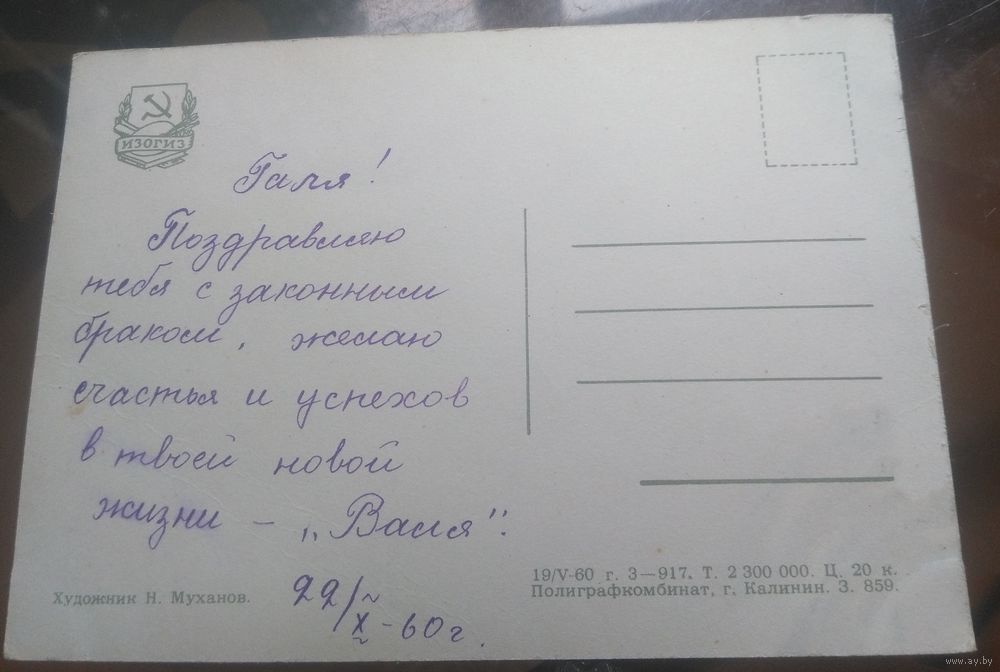 ИЗОГИЗ
Галя!
Поздравляю
тебя с законным
браком, желаю
счастья и успехов
в твоей новой
жизни – „Валя".
22/X-60 г.
Художник Н. Муханов.
19/V-60 г. З—917. Т. 2 300 000. Ц. 20 к.
Полиграфкомбинат, г. Калинин. З. 859.
www.ay.by